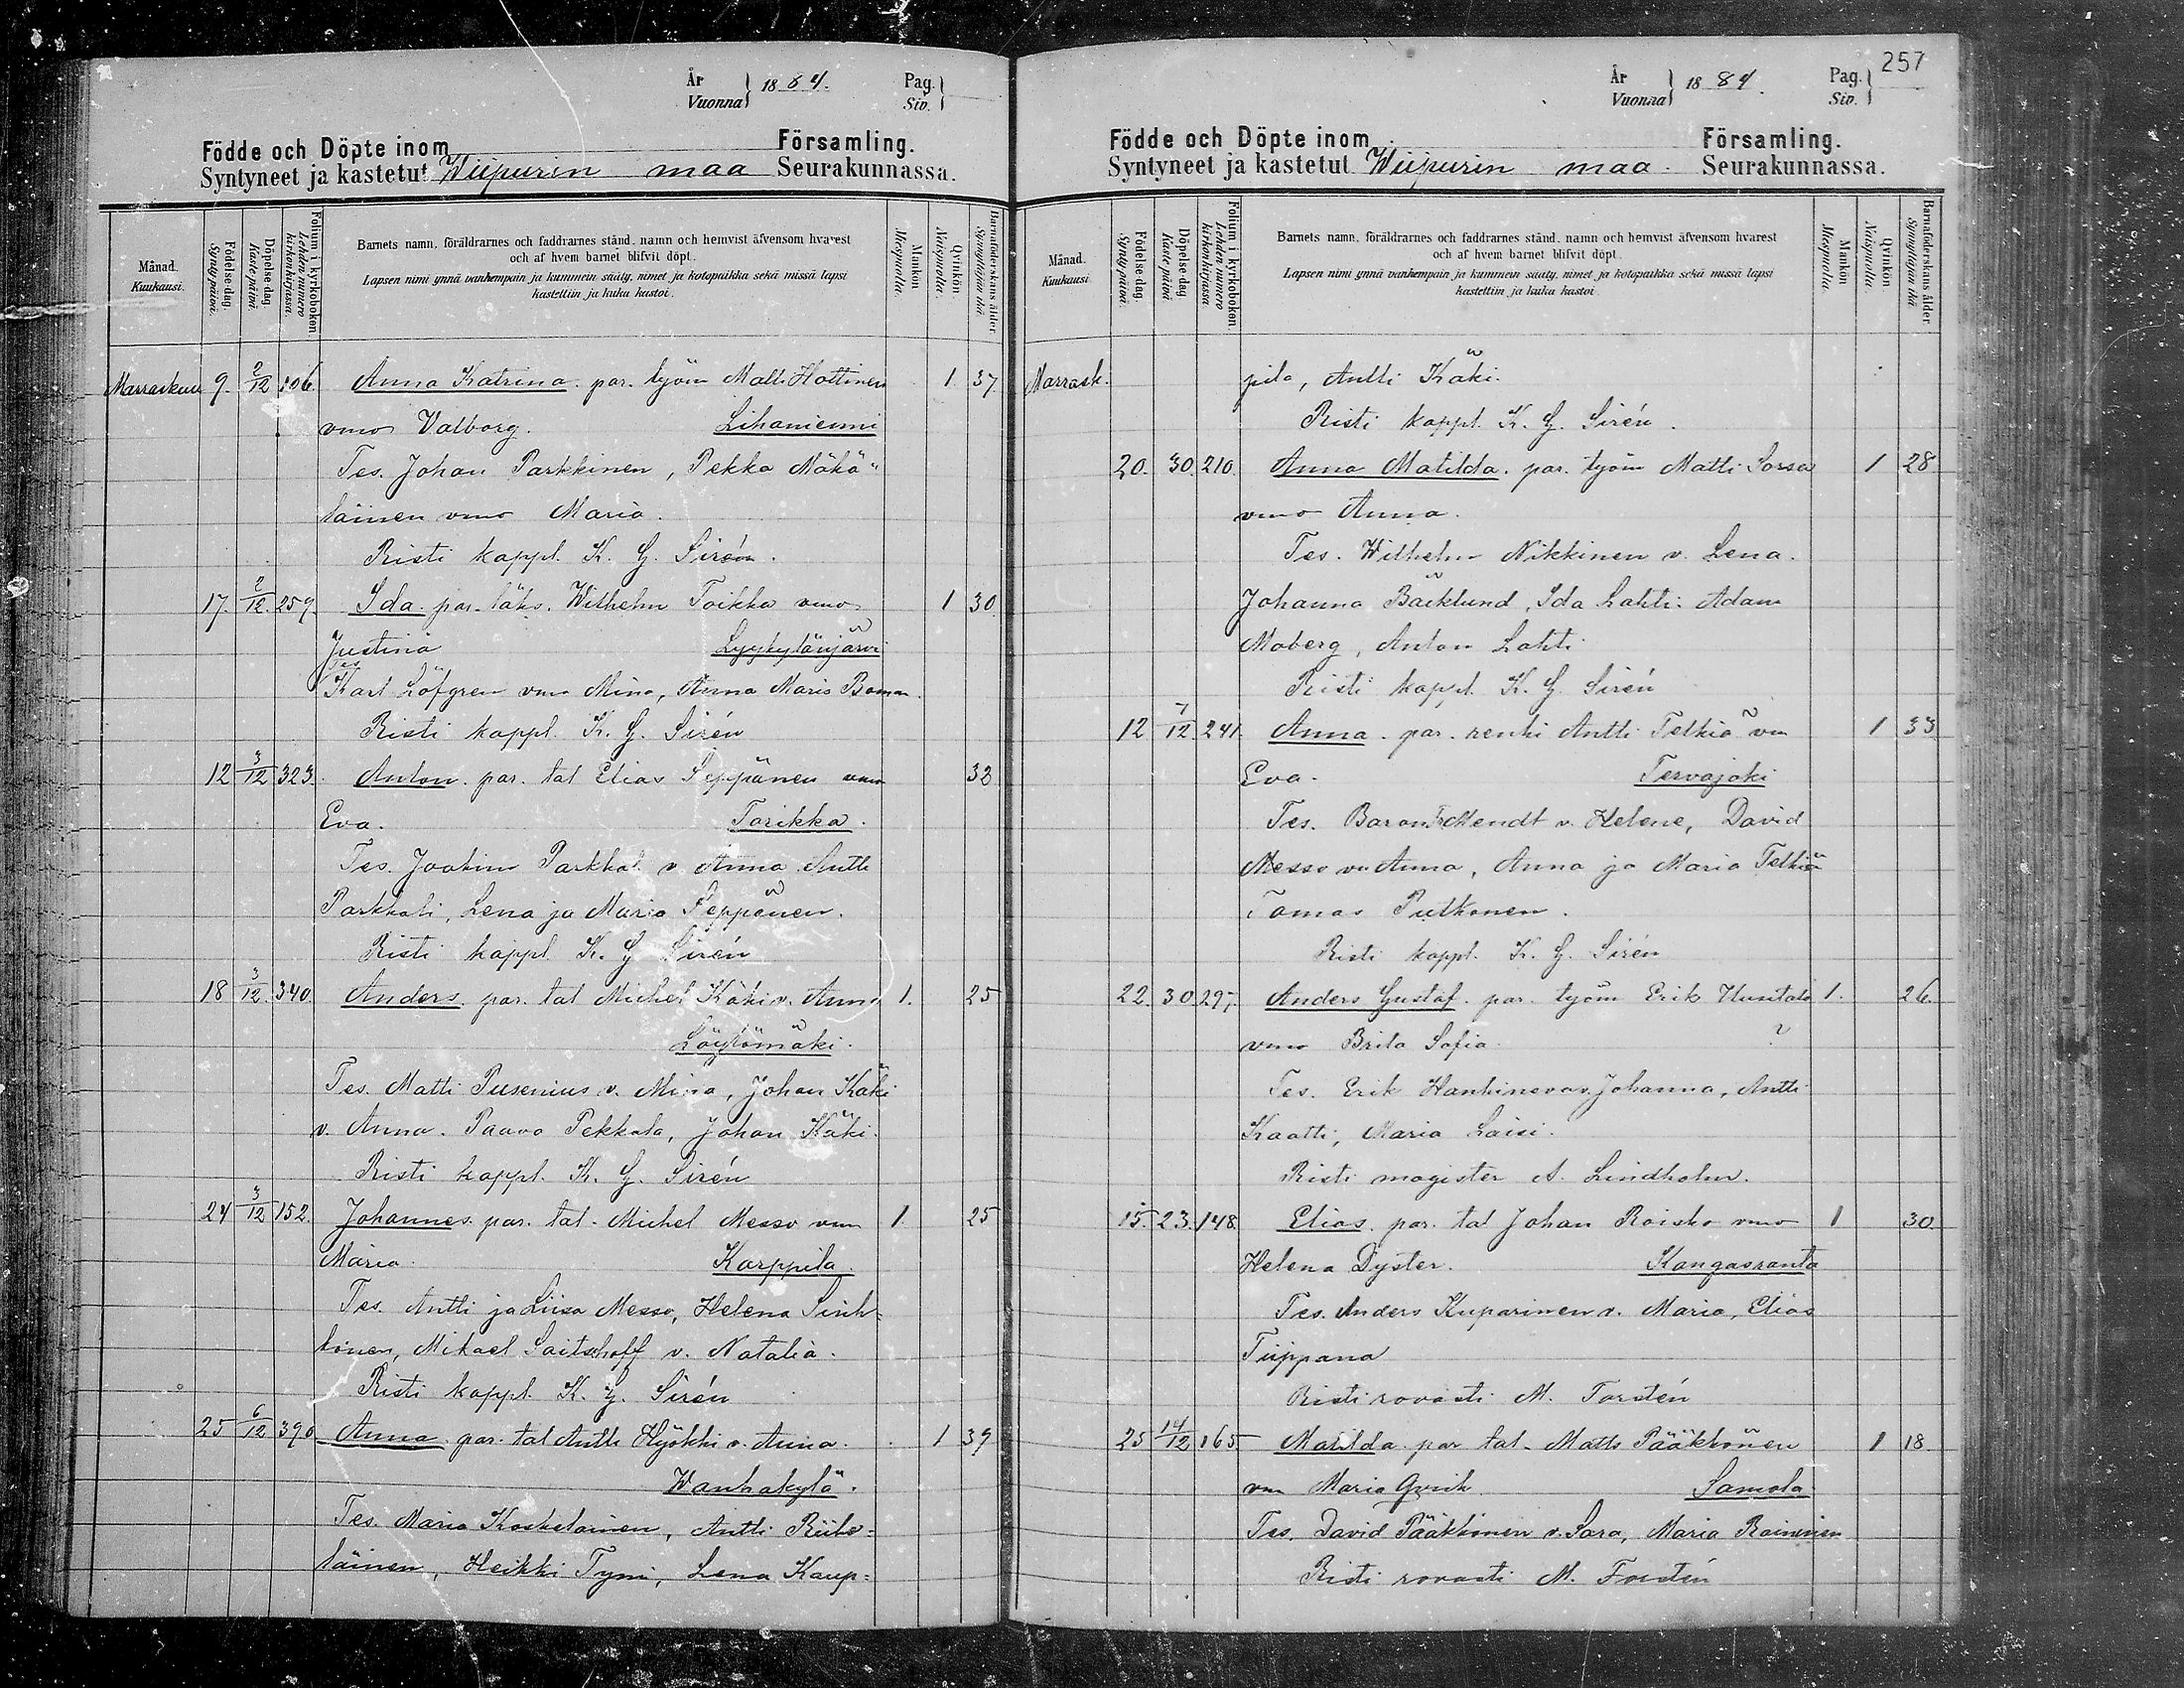 År
Vuonna } 1884.
Pag.
Siv. }
Födde och Döpte inom Församling.
Syntyneet ja kastetut Wiipurin maa Seurakunnassa.
Månad. Kuukausi.
Födelse dag. Synty päivä.
Döpelse dag Kaste päivä.
Folium i kyrkoboken. Lehden numero kirkonkirjassa.
Barnets namn, föräldrarnes och faddrarnes stånd, namn och hemvist äfvensom hvarest
och af hvem barnet blifvit döpt.
Lapsen nimi ynnä vanhempain ja kummein sääty, nimet ja kotopaikka sekä missä lapsi
kastettiin ja kuka kastoi.
Mankön Miespuolia.
Qvinkön. Naispuolia.
Barnaföderskans ålder. Synnyttäjän ikä.
Marraskuu 9. 2/12 206. Anna Katrina. par. työm Matti Hottinen 1. 37.
vmo Valborg. Lihaniemi
Tes. Johan Parkkinen, Pekka Mökö"
läinen vmo Maria.
Risti kappl. K. G. Sirén.
17. 2/12. 259. Ida. par. läks. Wilhelm Toikka vmo 1 30.
Justina Lyykylänjärvi
Tes
Karl Löfgren vmo Mina, Anna Maria Boman.
Risti kappl. K. G. Sirén
12 3/12 323. Anton. par. tal Elias Seppänen vmo 32
Eva. Tarikka.
Tes. Joakim Parkkali v. Anna. Antti
Parkkali, Lena ja Maria Seppänen.
Risti kappl K. G Sirén
18 3/12. 340. Anders. par. tal Michel Käki v. Anna 1. 25
Löytömäki.
Tes. Matti Pusenius v. Mina, Johan Käki
v. Anna. Paavo Pekkala, Johan Käki.
Risti kappl. K. G. Sirén
24 3/12 152. Johannes. par. tal. Michel Messo vmo 1. 25
Maria. Karppila.
Tes. Antti ja Liisa Messo, Helena Sink=
konen, Mikael Saitschoff v. Natalia.
Risti kappl. K. G. Sirén
25 6/12 390 Anna par. tal Antti Hyökki v. Anna. 1 39
Wanhakylä.
Tes. Maria Koskelainen, Antti Riibe=
läinen, Heikki Tyni, Lena Kaup=
257
År
Vuonna } 1884.
Pag.
Siv. }
Födde och Döpte inom Församling.
Syntyneet ja kastetut Wiipurin maa. Seurakunnassa.
Månad. Kuukausi.
Födelse dag. Synty päivä.
Döpelse dag Kaste päivä.
Folium i kyrkoboken. Lehden numero kirkonkirjassa.
Barnets namn, föräldrarnes och faddrarnes stånd, namn och hemvist äfvensom hvarest
och af hvem barnet blifvit döpt.
Lapsen nimi ynnä vanhempain ja kummein sääty, nimet ja kotopaikka sekä missä lapsi
kastettiin ja kuka kastoi.
Mankön Miespuolia.
Qvinkön. Naispuolia.
Barnaföderskans ålder. Synnyttäjän ikä.
Marrask. pila, Antti Käki.
Risti kappl. K. G. Sirén.
20. 30. 210. Anna Matilda. par. työm Matti Sorsa 1 28
vmo Anna.
Tes. Wilhelm Nikkinen v. Lena.
Johanna Bäcklund, Ida Lahti. Adam
Moberg, Anton Lahti
Risti kappl. K. G. Sirén
12 7/12. 241. Anna. par. renki Antti Telkiä vm 1 33
Eva. Tervajoki
Tes. Baron Fr Mendt v. Helene, David
Messo vm Anna, Anna ja Maria Telkiä
Tomas Putkonen.
Risti kappl. K. G. Sirén
22. 30. 297. Anders Gustaf. par. työm Erik Uusitalo 1. 26.
vmo Brita Sofia. ?
Tes. Erik Hankinen v. Johanna, Antti
Kaatti, Maria Laisi.
Risti magister A. Lindholm.
15. 23. 148. Elias. par. tal Johan Roisko vmo 1 30.
Helena Dyster. Kangasranta
Tes. Anders Kuparinen v. Maria, Elias
Tiippana
Risti rovasti M. Forstén
25 14/12 165 Matilda par tal. Matts Pääkkönen 1 18.
vm Maria Qvick. Samola
Tes. David Pääkkönen v. Sara, Maria Raininen
Risti rovasti M. Forstén